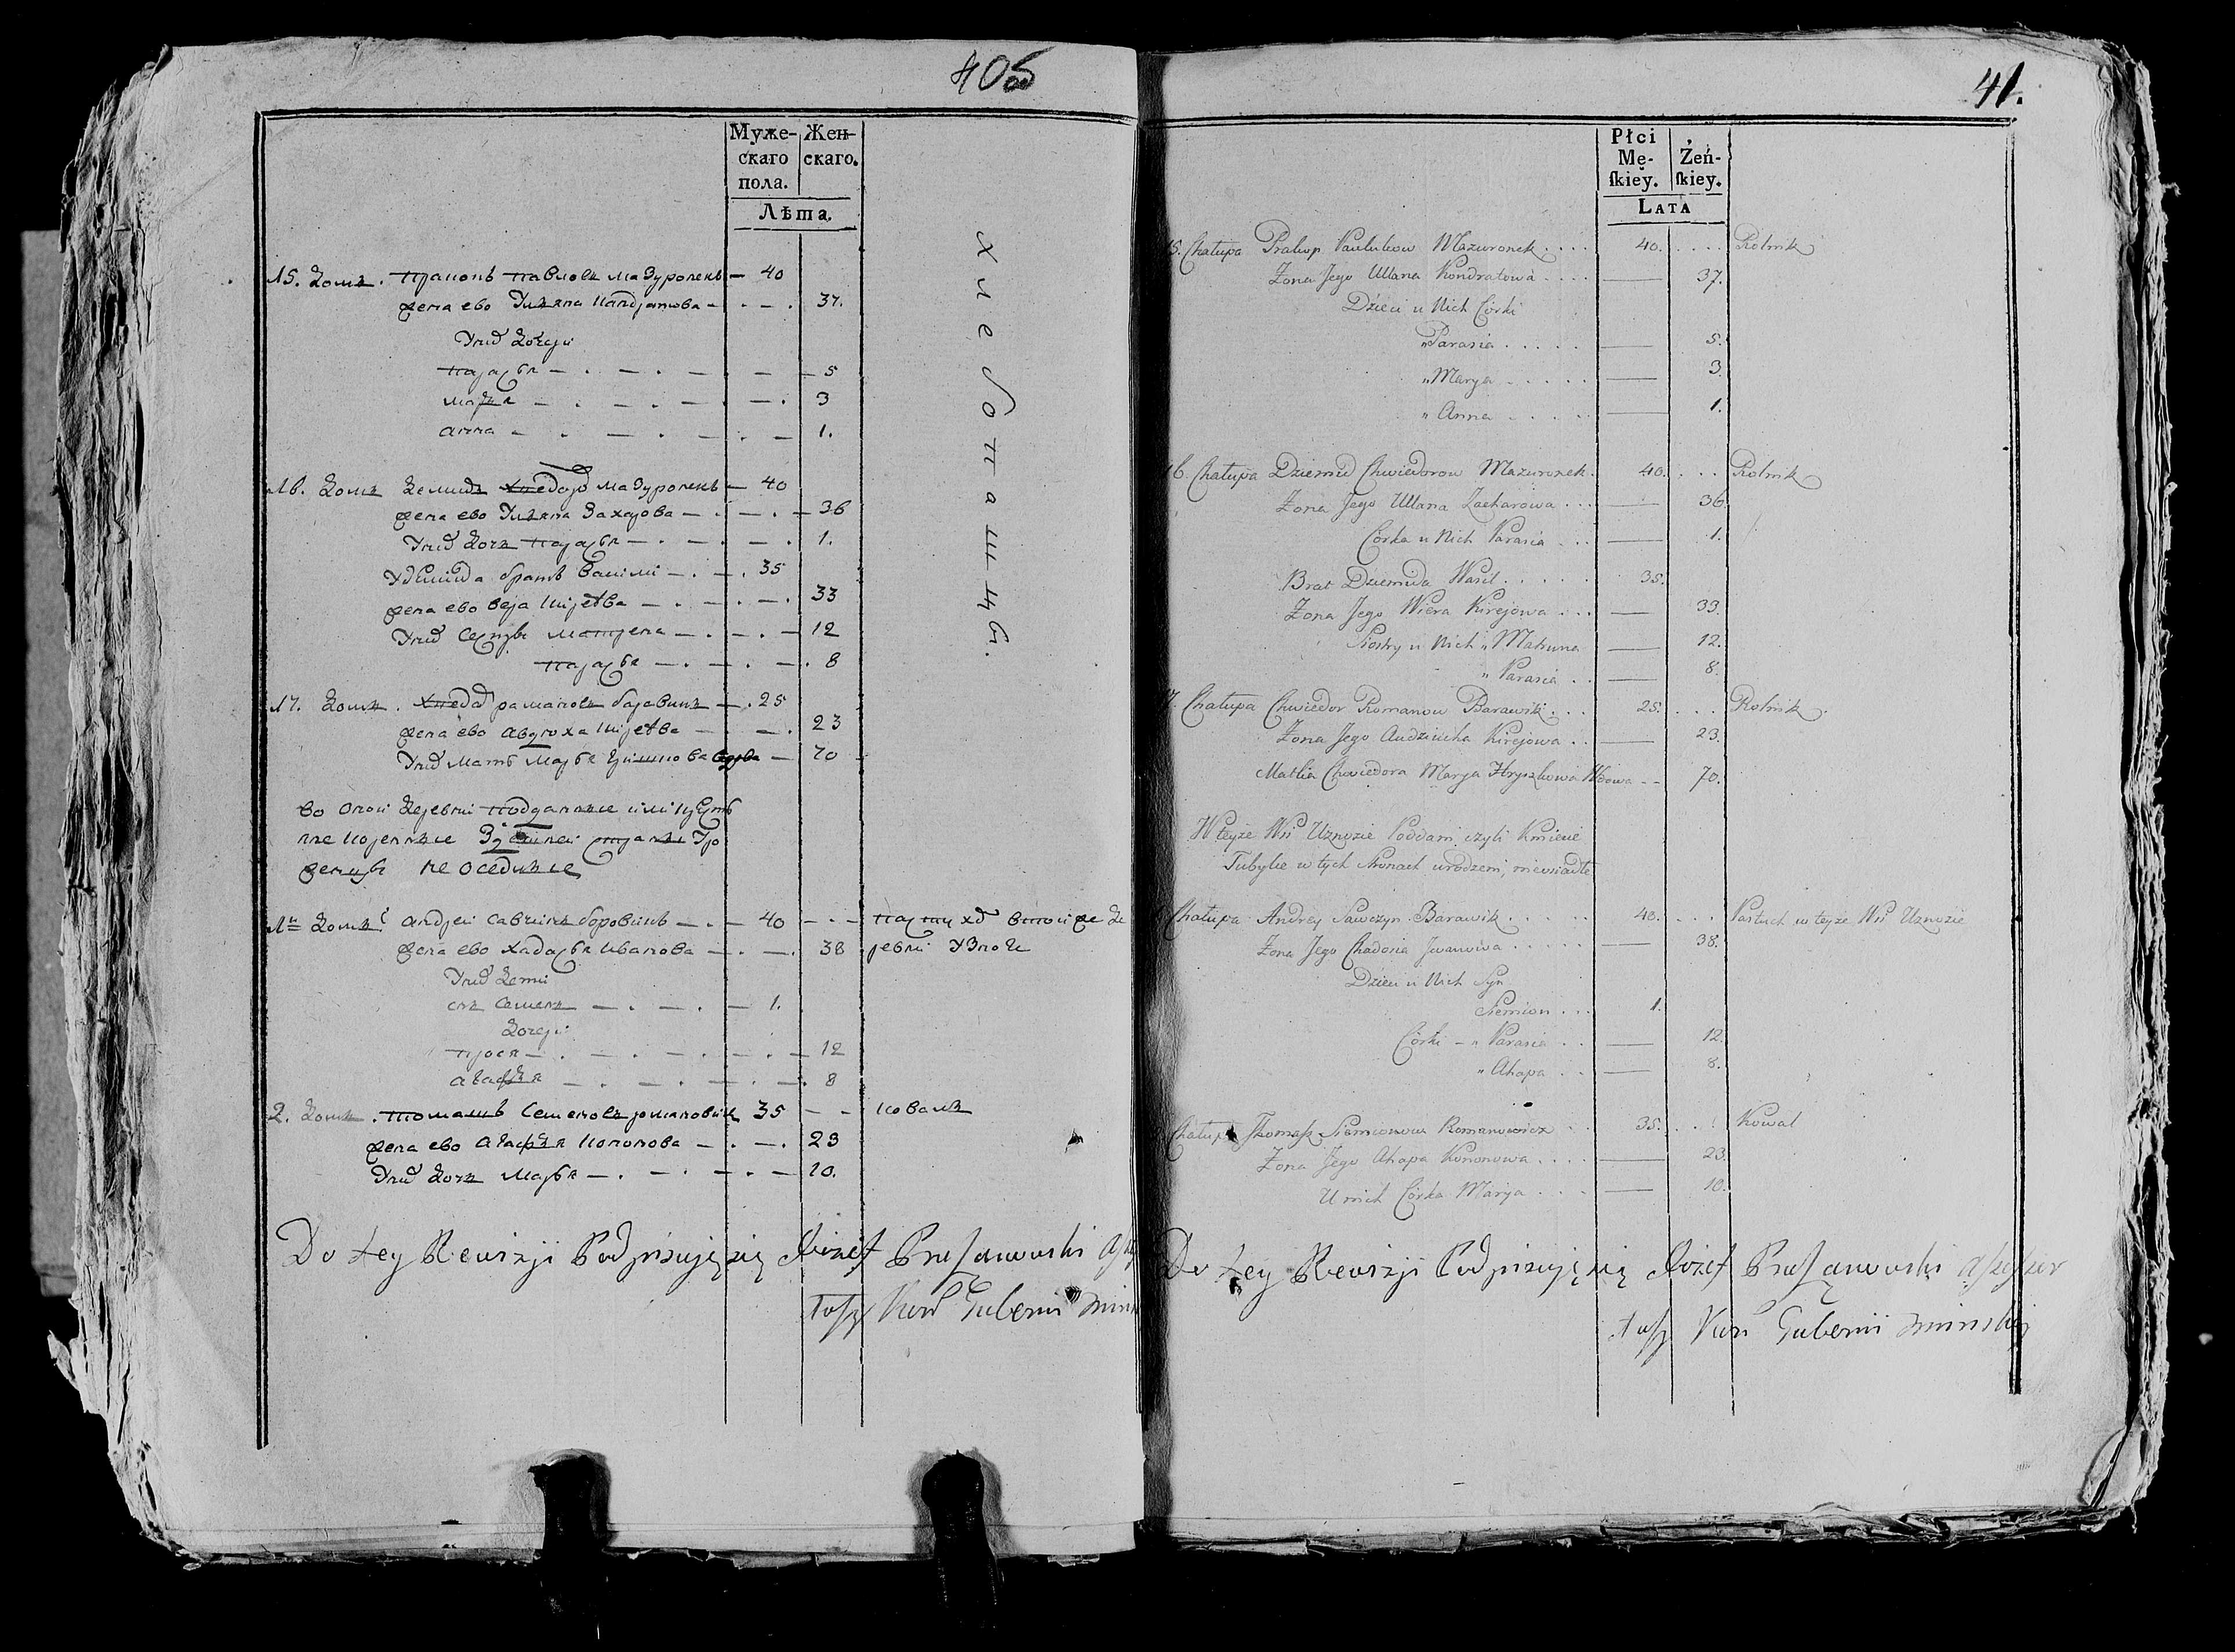 405
Муже-
скаго
пола.
Жен-
скаго.
Лѣта.
хлебопашцы.
15. Домъ. Прапопъ Павловъ Мазуронекъ — 40
жена ево Ульяна Кандратова — 37.
У них дочери
Парася — 5
Марья — 3
Анна — 1.
16. Домъ Демидъ Хведоро Мазуронекъ — 40
жена ево Ульяна Захарова — 36
У них дочь Парася — 1.
У Демида братъ Васили — 35
жена ево Вера Киреева — 33
У них сестры Матрена — 12
Парася — 8
17. Домъ. Хведор Рамановъ Баравикъ — 25
жена ево Авдюха Киреева — 23
У них мать Марья Гришкова вдова — 70
во оной деревни подданные или крестя
не коренные здешней страны уро
женцы не оседлые
1й Домъ Андреи Савчинъ Боровикъ — 40 — Пастух в той же де
жена ево Хадося Иванова — 38 ревни Узноги
У них дети
сынъ Семенъ — 1.
дочери
Прося — 12
Агафья — 8
2. Домъ. Томашъ Семеновъ Романовичъ 35 — коваль
жена ево Агафья Кононова — 23
У них дочь Марья — 10.
Do tey Rewizji Podpisuję się Józef
Gubernii Minn
41.
Płci
Mę-
ſkiey.
Żeń-
ſkiey.
LATA
15. Chałupa Prakop Paulukow Mazuronek .... 40. .... Rolnik
Żona Jego Ullana Kondratowa .... — 37.
Dzieci u Nich Córki
„Parasia ..... — 5.
„Marya ..... — 3.
„Anna ..... — 1.
16. Chałupa Dziemid Chwiedorow Mazuronek. 40. ... Rolnik
Żona Jego Ullana Zacharowa ... — 36.
Córka u Nich Parasia ... — 1.
Brat Dziemida Wasil ..... 35.
Żona Jego Wiera Kirejowa ... — 33.
Siostry u Nich „Matruna — 12.
„Parasia .. — 8.
17. Chałupa Chwiedor Romanow Barawik ... 25. ... Rolnik.
Żona Jego Audziucha Kirejowa .. — 23.
Matka Chwiedora Marya Hryszkowa Wdowa -- 70.
W teyże Wsi Uznozie Poddani czyli Kmiecie
Tubylce w tych Stronach urodzeni, nieosiadłe
Chałupa Andrey Sawczyn Barawik ..... 40. ... Pastuch w teyże Wsi Uznozie
Żona Jego Chadosia Iwanowa ..... — 38.
Dzieci u Nich Syn
Siemion ... 1.
Córki - „Parasia .. — 12.
„Ahapa .. — 8.
Chałupa Thomaſz Siemionow Romanowicz .. 35. ... Kowal
Żona Jego Ahapa Kononowa .... — 23.
U nich Córka Marya .... — 10.
Do tey Rewizji Podpisuję się Józef
Gubernii Minskiej